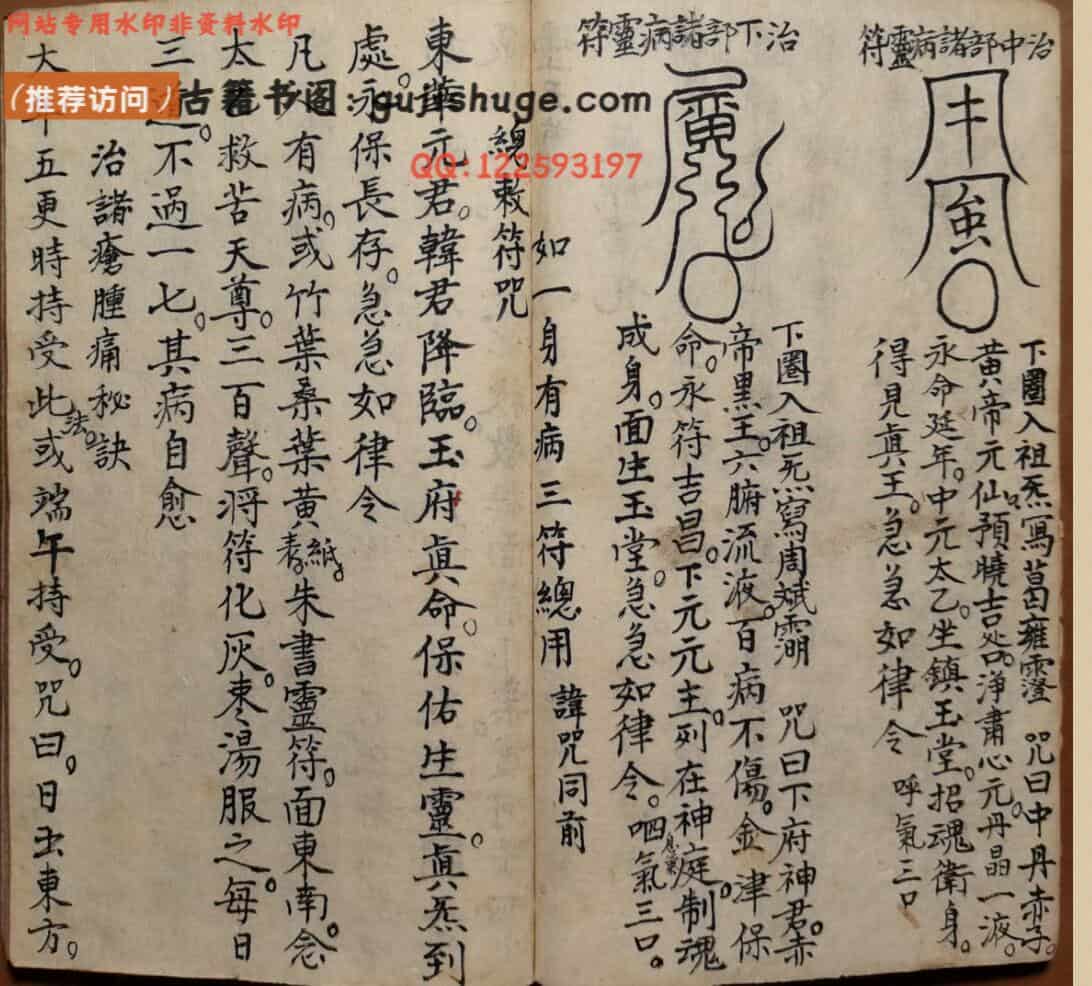 网站专用水印非资料水印
（推荐访问）古籍书阁：gujishuge.com
QQ:122593197
治中部諸病靈符
下圈入祖炁寫葛雍霪 咒曰中丹赤子。
黃帝元仙預曉吉。淨肅心元。丹晶一液。
永命延年。中元太乙。坐鎮玉堂。招魂衛身。
得見真王。急急如律令 呼氣三口
治下部諸病靈符
下圈入祖炁寫周斌 咒曰下府神君。赤
帝黑王。六腑流液。百病不傷。金津保
命。永符吉昌。下元元主。列在神庭。制魂
成身。面生玉堂。急急如律令。呬氣三口。
如一身有病三符總用 諱咒同前
總敕符咒
東華元君。韓君降臨。玉府真命。保佑生靈。真炁到
處。永保長存。急急如律令
凡 有病。或竹葉桑葉黃表紙。朱書靈符。面東南。念
太 救苦天尊。三百聲。將符化灰。棗湯服之。每日
三 不過一七。其病自愈
治諸瘡腫痛秘訣
大 五更時持受此法。或端午持受。咒曰。日出東方。